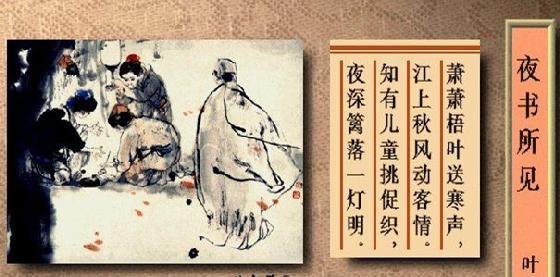 夜书所见
叶
萧萧梧叶送寒声，
江上秋风动客情。
知有儿童挑促织，
夜深篱落一灯明。